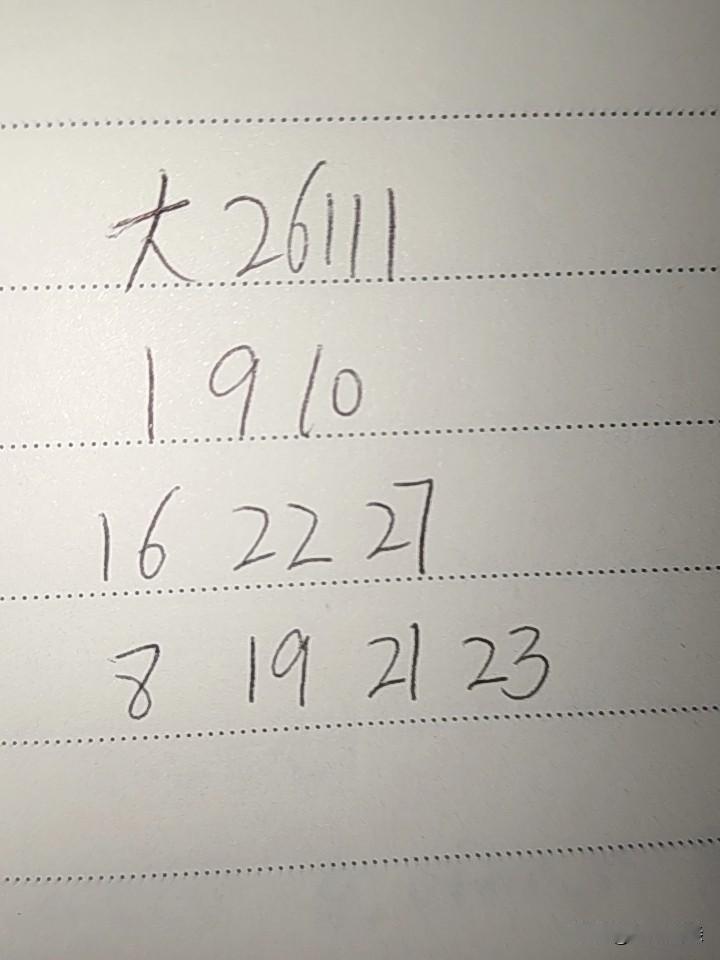 大 26111
1 9 10
16 22 27
8 19 21 23